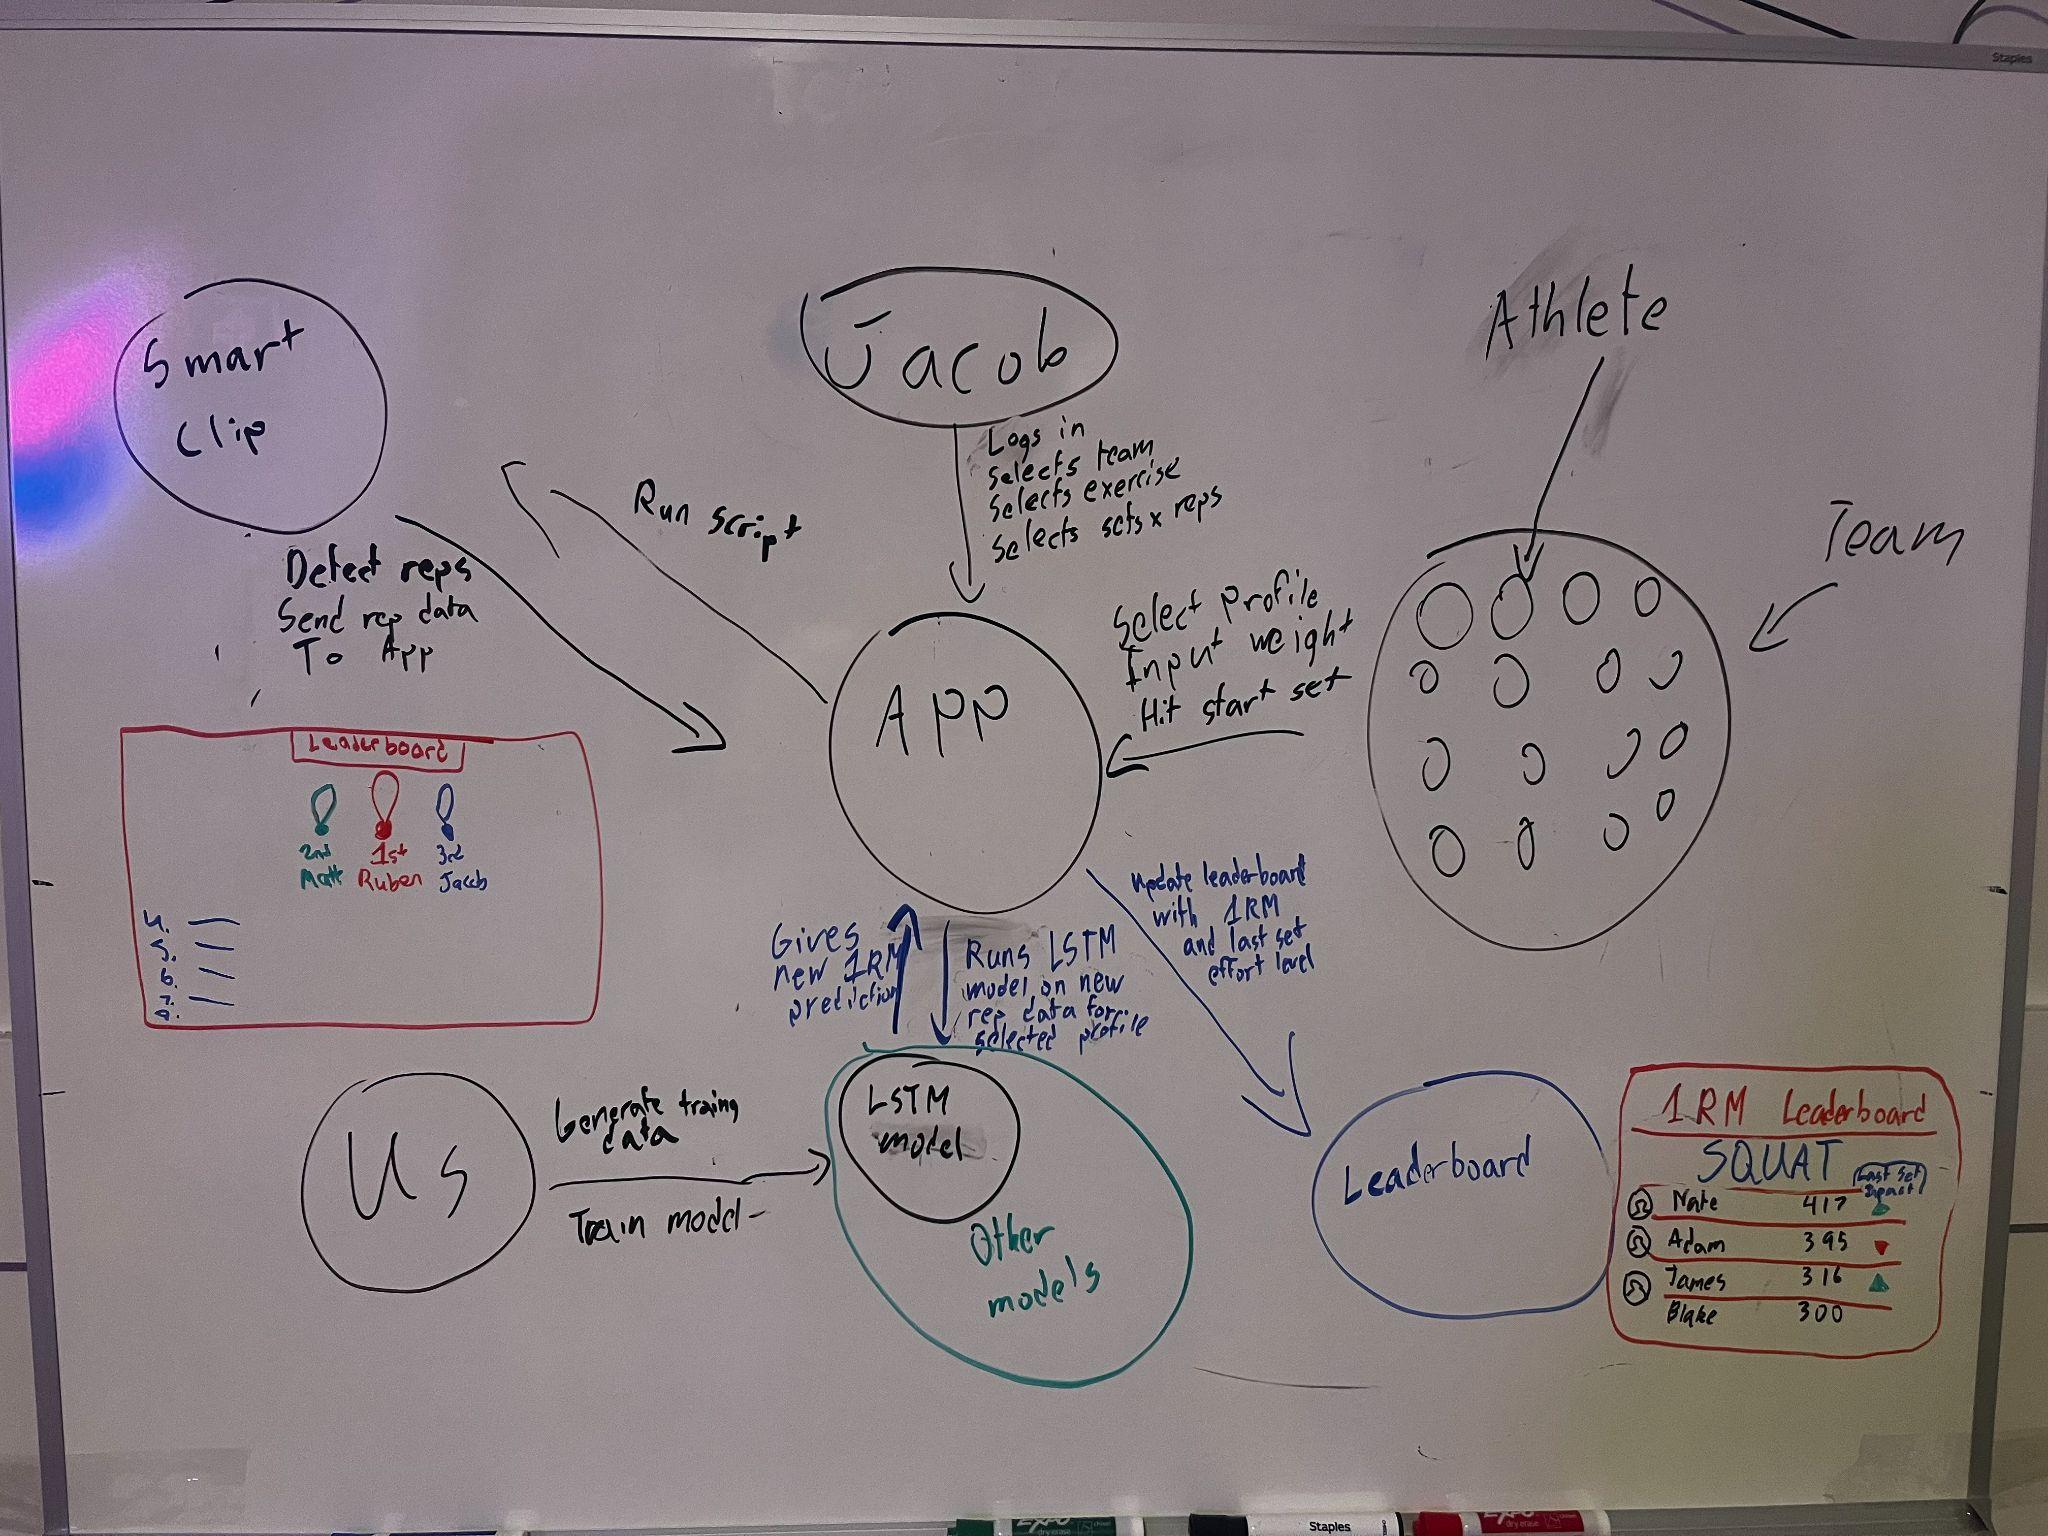 Staples
Smart
Clip
Jacob
Athlete
Team
Logs in
Selects team
Selects exercise
Selects sets x reps
Run script
Detect reps
Send rep data
To App
Select profile
Input weight
Hit start set
App
Leaderboard
2nd
Matt
1st
Ruben
3rd
Jacob
4.
5.
6.
7.
8.
Gives
new 1RM
prediction
Runs LSTM
model on new
rep data for
selected profile
Update leaderboard
with 1RM
and last set
effort level
Us
Generate traing
data
Train model
LSTM
model
Other
models
Leaderboard
1RM Leaderboard
SQUAT
Last set
Impact
Nate 417
Adam 395
James 316
Blake 300
EXPO
dry erase
Staples
EXPO
dry erase